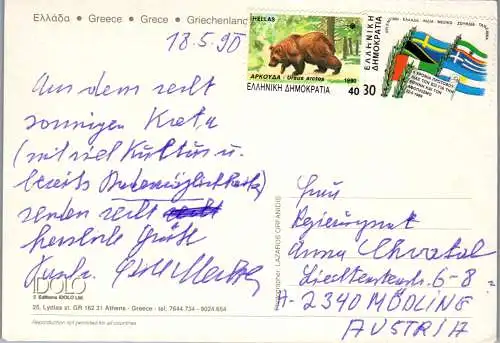 Ελλάδα • Greece • Grece • Griechenland
18.5.90
HELLAS
ΑΡΚΟΥΔΑ - Ursus arctos
1990
ΕΛΛΗΝΙΚΗ ΔΗΜΟΚΡΑΤΙΑ 40
ΕΛΛΗΝΙΚΗ
ΔΗΜΟΚΡΑΤΙΑ
30
Aus dem recht
sonnigen Kreta
(mit viel Kultur u.
bereits Bademöglichkeit)
senden recht
herzliche Grüße
Regierungsrat
Anna
Liechtensteinstr. 6-8
A-2340 MÖDLING
AUSTRIA
IDOLO
© Editions IDOLO Ltd
26, Lydias st. GR 162 31 Athens - Greece - tel: 7644.734 - 9024.654
Reproduction not permited for all countries
Photographer: LAZAROS ORFANIDIS